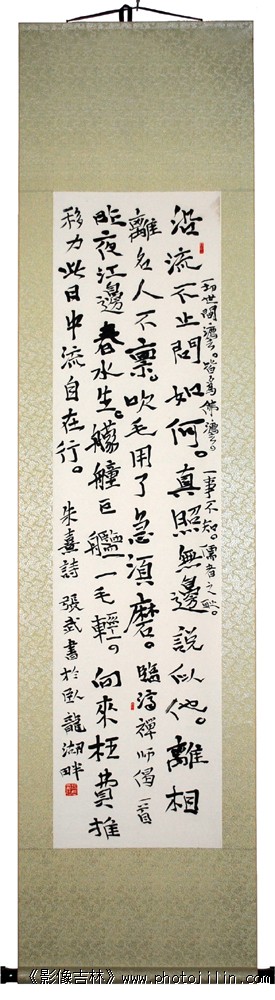 一切世間法。皆為佛法。一事不知。儒者之恥。
沿流不止問如何。真照無邊說似他。離相
離名人不稟。吹毛用了急須磨。臨濟禪師偈一首
昨夜江邊春水生。艨艟巨艦一毛輕。向來枉費推
移力此日中流自在行。朱熹詩 張武書於臥龍湖畔
《影像吉林》www.photojilin.com